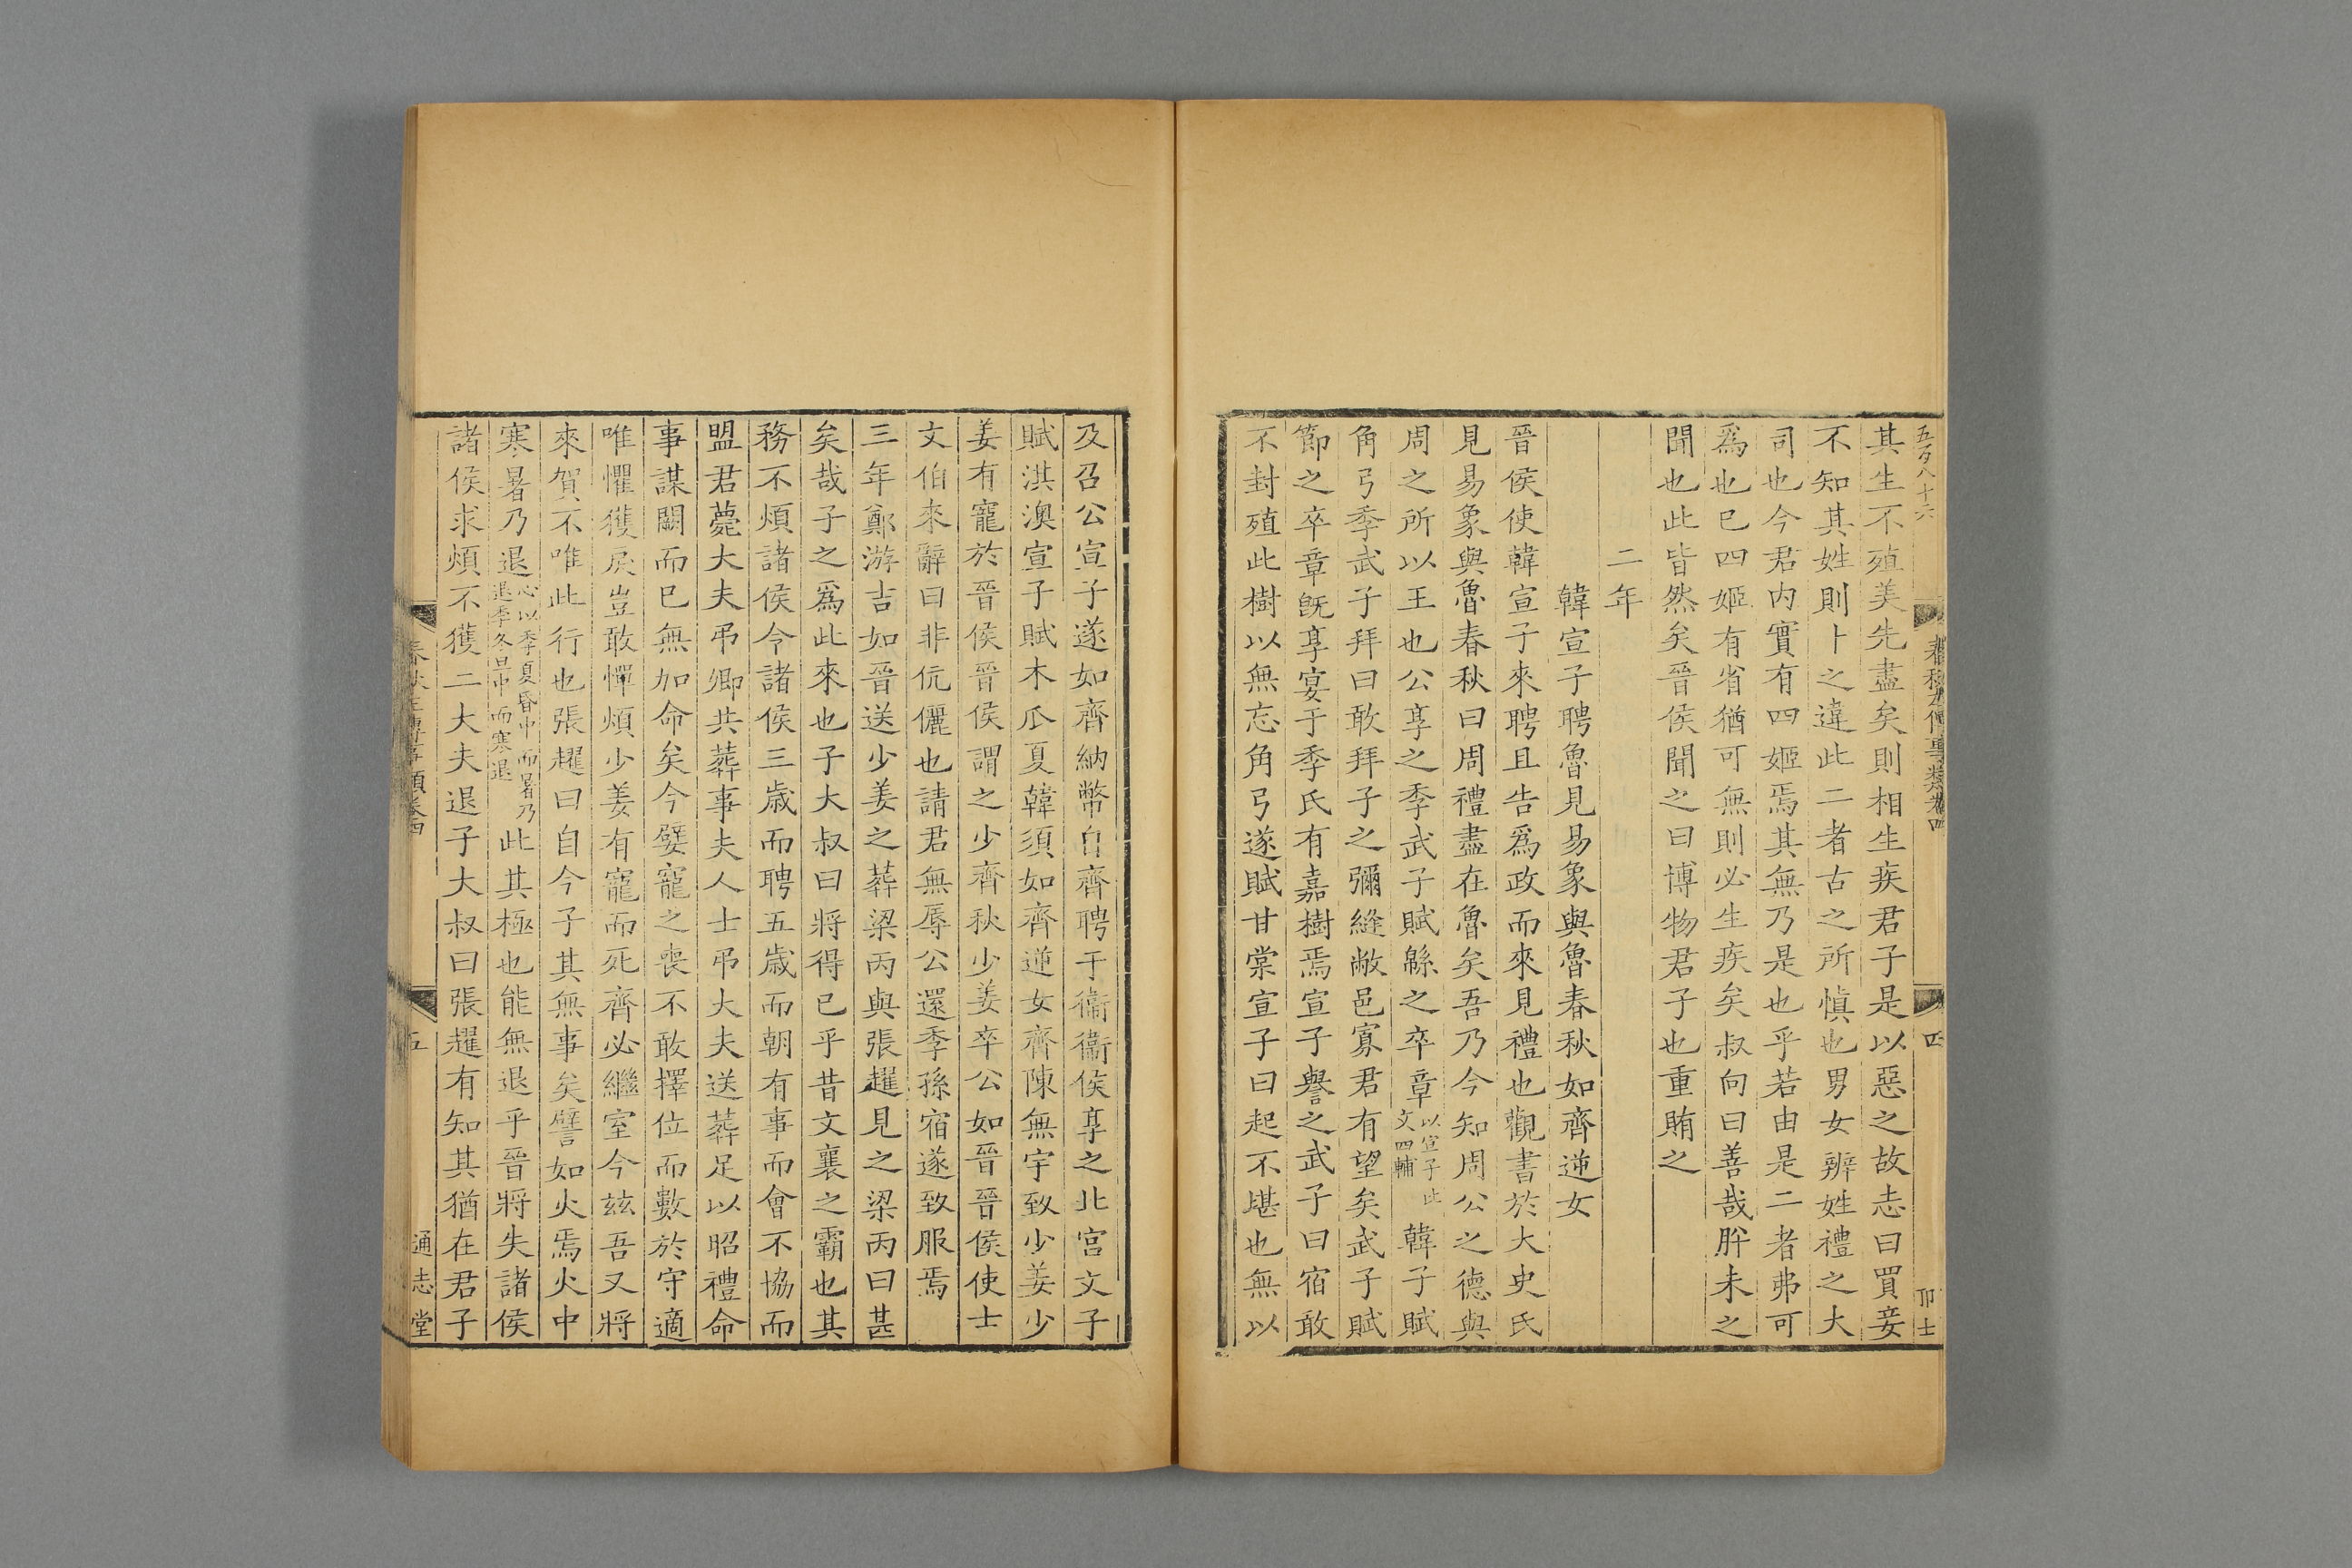 五百八十六
春秋左傳事類卷四
四
其生不殖美先盡矣則相生疾君子是以惡之故志曰買妾
不知其姓則卜之違此二者古之所慎也男女辨姓禮之大
司也今君内實有四姬焉其無乃是也乎若由是二者弗可
爲也已四姬有省猶可無則必生疾矣叔向曰善哉肸未之
聞也此皆然矣晉侯聞之曰博物君子也重賄之
二年
韓宣子聘魯見易象與魯春秋如齊逆女
晉侯使韓宣子來聘且告爲政而來見禮也觀書於大史氏
見易象與魯春秋曰周禮盡在魯矣吾乃今知周公之德與
周之所以王也公享之季武子賦緜之卒章以宣子比文四輔韓子賦
角弓季武子拜曰敢拜子之彌縫敝邑寡君有望矣武子賦
節之卒章旣享宴于季氏有嘉樹焉宣子譽之武子曰宿敢
不封殖此樹以無忘角弓遂賦甘棠宣子曰起不堪也無以
及召公宣子遂如齊納幣自齊聘于衞衞侯享之北宮文子
賦淇澳宣子賦木瓜夏韓須如齊逆女齊陳無宇致少姜少
姜有寵於晉侯晉侯謂之少齊秋少姜卒公如晉晉侯使士
文伯來辭曰非伉儷也請君無辱公還季孫宿遂致服焉
三年鄭游吉如晉送少姜之葬梁丙與張趯見之梁丙曰甚
矣哉子之爲此來也子大叔曰將得已乎昔文襄之霸也其
務不煩諸侯令諸侯三歲而聘五歲而朝有事而會不協而
盟君薨大夫弔卿共葬事夫人士弔大夫送葬足以昭禮命
事謀闕而已無加命矣今嬖寵之喪不敢擇位而數於守適
唯懼獲戾豈敢憚煩少姜有寵而死齊必繼室今兹吾又將
來賀不唯此行也張趯曰自今子其無事矣譬如火焉火中
寒暑乃退心以季夏昏中而暑乃退季冬旦中而寒退此其極也能無退乎晉將失諸侯
諸侯求煩不獲二大夫退子大叔曰張趯有知其猶在君子
春秋左傳事類卷四
五
通志堂